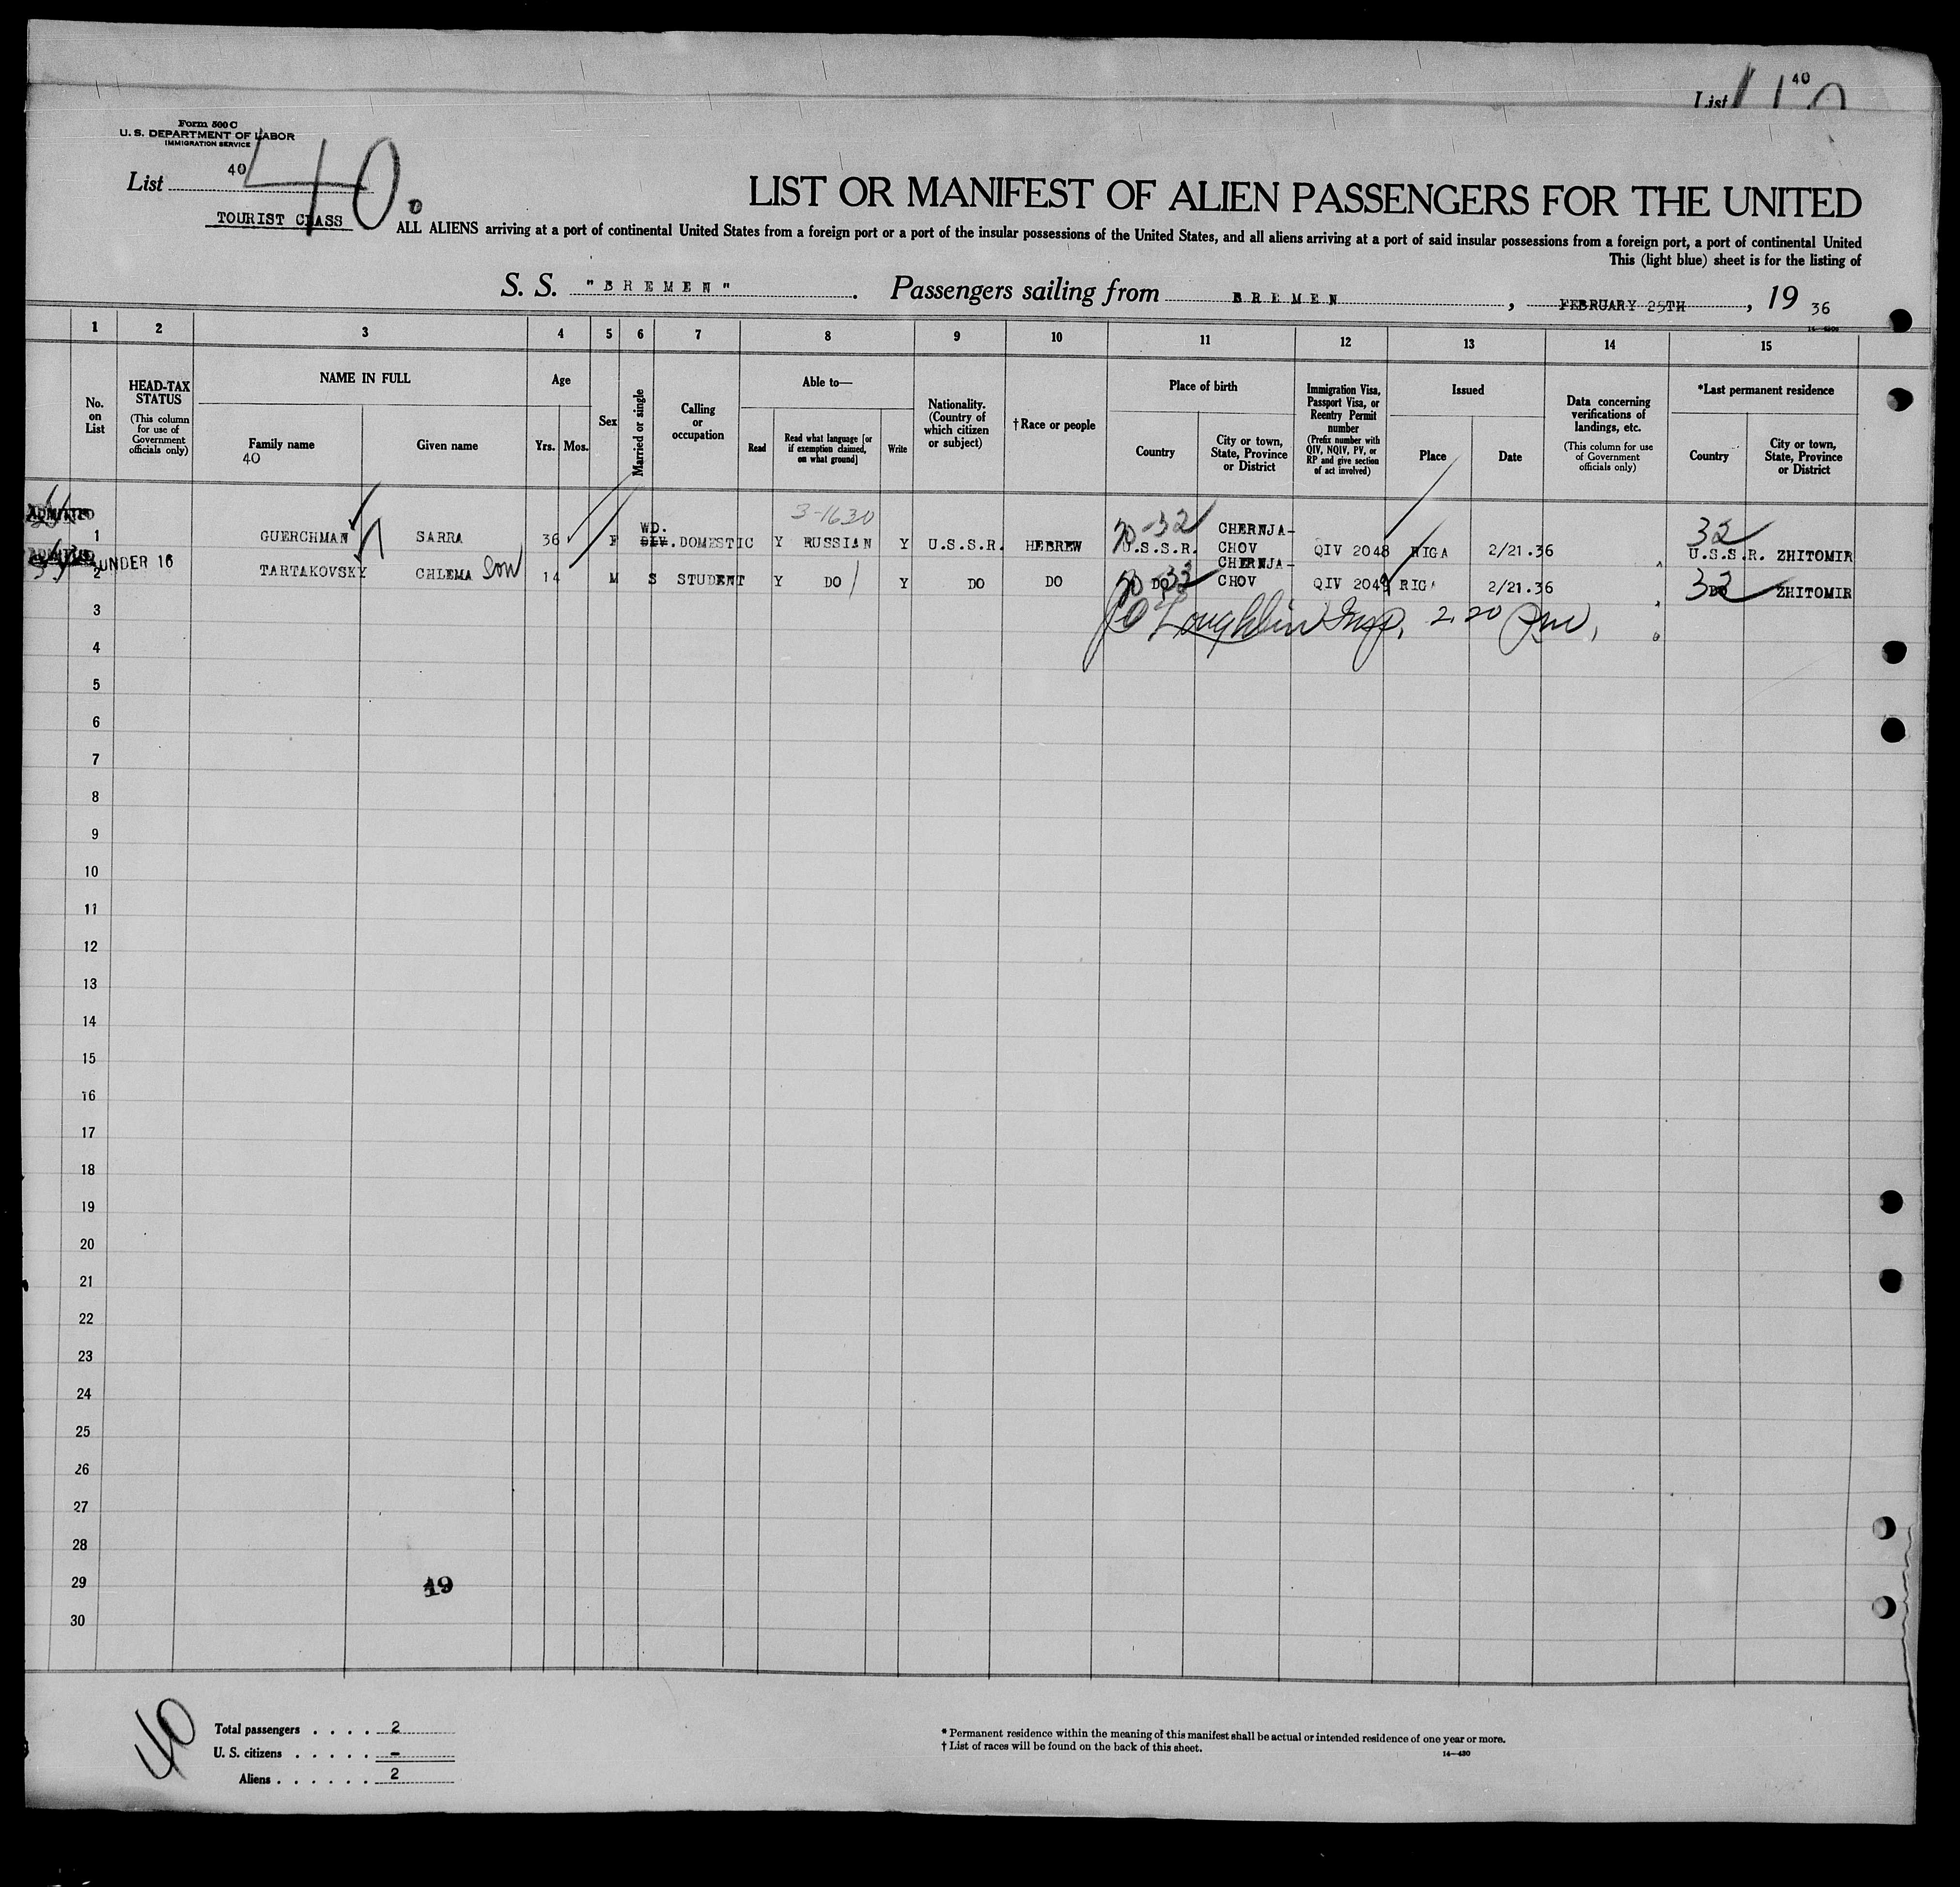 List 40
Form 500 C
U. S. DEPARTMENT OF LABOR
IMMIGRATION SERVICE
List 40 40
TOURIST CLASS
LIST OR MANIFEST OF ALIEN PASSENGERS FOR THE UNITED
ALL ALIENS arriving at a port of continental United States from a foreign port or a port of the insular possessions of the United States, and all aliens arriving at a port of said insular possessions from a foreign port, a port of continental United
This (light blue) sheet is for the listing of
S. S. "BREMEN". Passengers sailing from BREMEN, FEBRUARY 25TH, 19 36
1 2 3 4 5 6 7 8 9 10 11 12 13 14 15
No. on List
HEAD-TAX STATUS
(This column for use of Government officials only)
NAME IN FULL
Family name
40
Given name
Age
Yrs. Mos.
Sex
Married or single
Calling or occupation
Able to—
Read
Read what language [or if exemption claimed, on what ground]
Write
Nationality. (Country of which citizen or subject)
†Race or people
Place of birth
Country
City or town, State, Province or District
Immigration Visa, Passport Visa, or Reentry Permit number
(Prefix number with QIV, NQIV, PV, or RP and give section of act involved)
Issued
Place
Date
Data concerning verifications of landings, etc.
(This column for use of Government officials only)
*Last permanent residence
Country
City or town, State, Province or District
ADMITTED
3-1630
1 GUERCHMAN SARRA 36 F WD. DIV. DOMESTIC Y RUSSIAN Y U.S.S.R. HEBREW 70-32 U.S.S.R. CHERNJA-CHOV QIV 2048 RIGA 2/21.36 32 U.S.S.R. ZHITOMIR
ADMITTED
2 UNDER 16 TARTAKOVSKY CHLEMA son 14 M S STUDENT Y DO Y DO DO DO CHERNJA-CHOV QIV 2049 RIGA 2/21.36 32 DO ZHITOMIR
3
O'Loughlin Insp. 2.20 Pm,
4
5
6
7
8
9
10
11
12
13
14
15
16
17
18
19
20
21
22
23
24
25
26
27
28
29
19
30
40
Total passengers . . . . 2
U. S. citizens . . . . . –
Aliens . . . . . . 2
* Permanent residence within the meaning of this manifest shall be actual or intended residence of one year or more.
† List of races will be found on the back of this sheet.
14—430